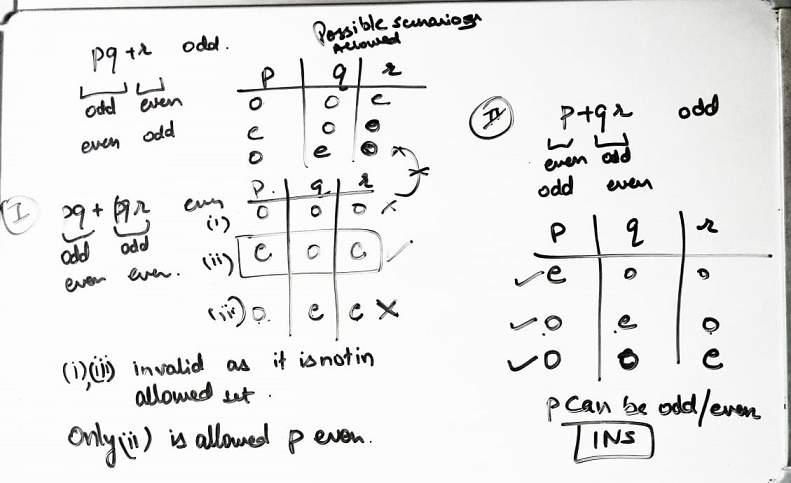 pq + r odd.
odd even
even odd
Possible scenarios
Allowed
p q r
o o e
e o o
o e o x
I
pq + pqr even
odd odd
even even.
p. q r
(i) o o o x
(ii) e o e ✓
(iii) o. e e X
(i),(iii) invalid as it is not in
allowed set.
Only (ii) is allowed p even.
II
p + qr odd
even odd
odd even
p q r
✓ e o o
✓ o e o
✓ o o e
p can be odd/even
INS